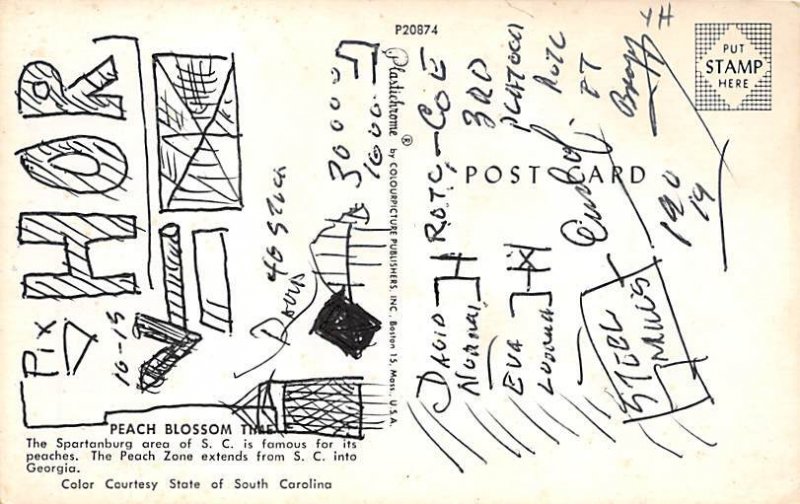 P20874
PUT
STAMP
HERE
POST CARD
Plastichrome ® by COLOURPICTURE PUBLISHERS, INC., Boston 15, Mass., U.S.A.
PEACH BLOSSOM TIME
The Spartanburg area of S. C. is famous for its
peaches. The Peach Zone extends from S. C. into
Georgia.
Color Courtesy State of South Carolina
HOR
Pix
10-15
DAVIS
30000
1000
ROTC-COE
3RD
PLATOON
ROTC
DAVID
NORMAL
EVA
STEEL
MILLS
190
19